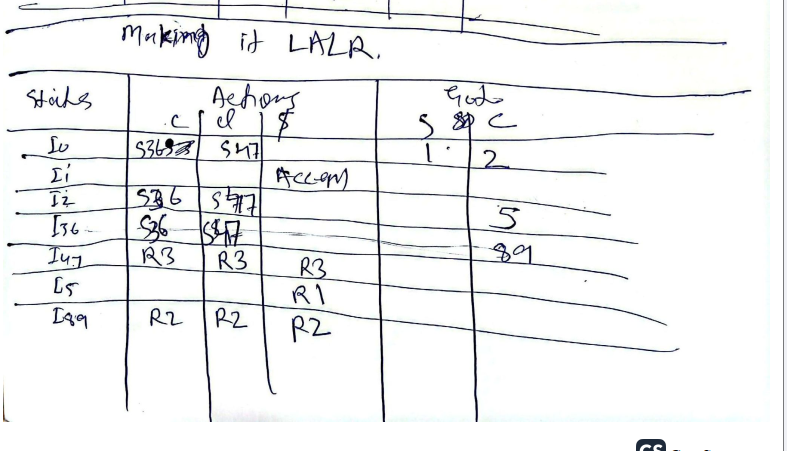 Making it LALR.
States Actions Goto
c d $ S C
I0 S36 S47 1 2
I1 Accept
I2 S36 S47 5
I36 S36 S47 89
I47 R3 R3 R3
I5 R1
I89 R2 R2 R2